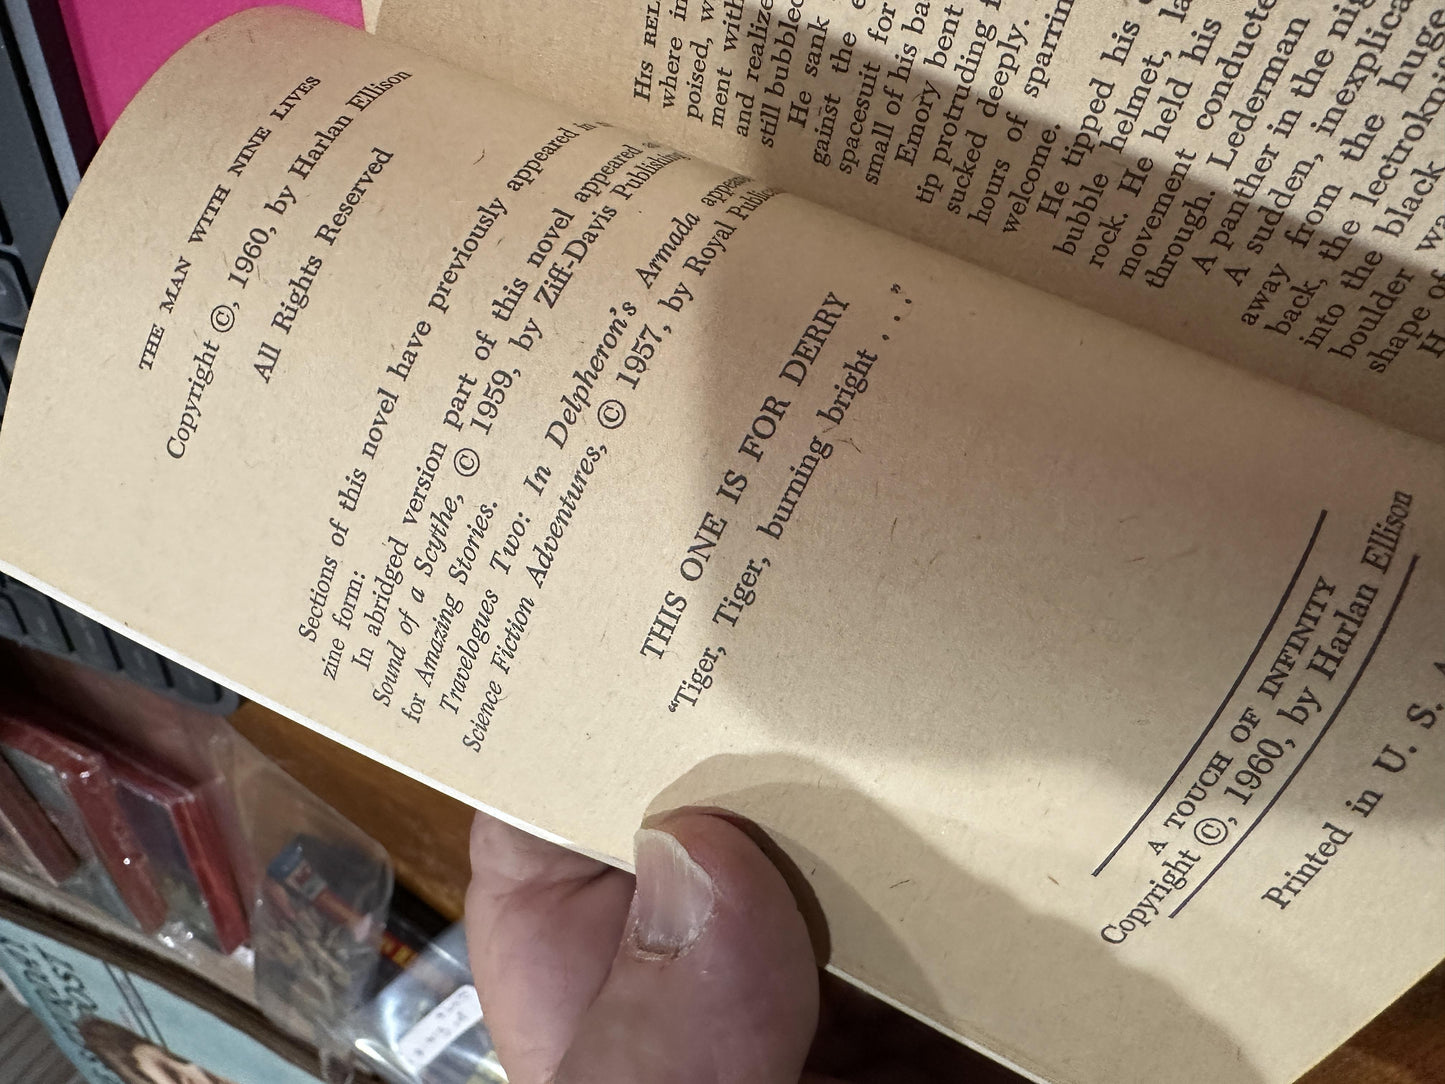 THE MAN WITH NINE LIVES
Copyright ©, 1960, by Harlan Ellison
All Rights Reserved
Sections of this novel have previously appeared in
zine form:
In abridged version part of this novel appeared
Sound of a Scythe, © 1959, by Ziff-Davis Publishing
for Amazing Stories.
Travelogues Two: In Delpheron's Armada
Science Fiction Adventures, © 1957, by Royal
THIS ONE IS FOR DERRY
"Tiger, Tiger, burning bright . . ."
A TOUCH OF INFINITY
Copyright ©, 1960, by Harlan Ellison
Printed in U. S.
HIS
where in
poised,
ment with
and realize
still bubbled
He sank
gainst the
spacesuit for
small of his
Emory bent
tip protruding
sucked deeply.
hours of sparring
welcome.
He tipped his
bubble helmet,
rock. He held his
movement
through. Lederman
A panther in the
A sudden,
away from the huge
back, the
into the black
boulder
shape of